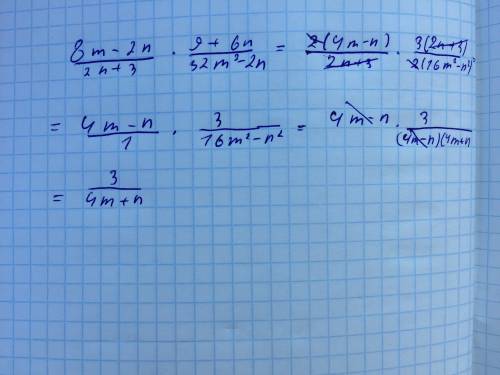 (8m-2n)/(2n+3) · (9+6n)/(32m²-2n) = (2(4m-n))/(2n+3) · (3(2n+3))/(2(16m²-n²))
= (4m-n)/1 · 3/(16m²-n²) = 4m-n · 3/((4m-n)(4m+n
= 3/(4m+n)